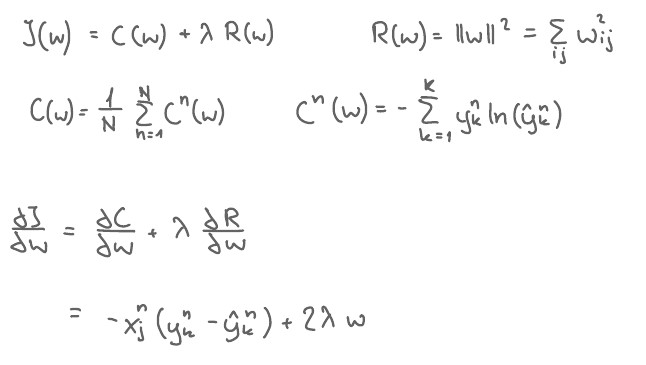 J(w) = C(w) + λ R(w)    R(w) = ||w||² = Σ_{ij} w²_{ij}
C(w) = 1/N Σ_{n=1}^{N} Cⁿ(w)    Cⁿ(w) = - Σ_{k=1}^{K} yₖⁿ ln(ŷₖⁿ)
∂J/∂w = ∂C/∂w + λ ∂R/∂w
= -xⱼⁿ (yₖⁿ - ŷₖⁿ) + 2λ w